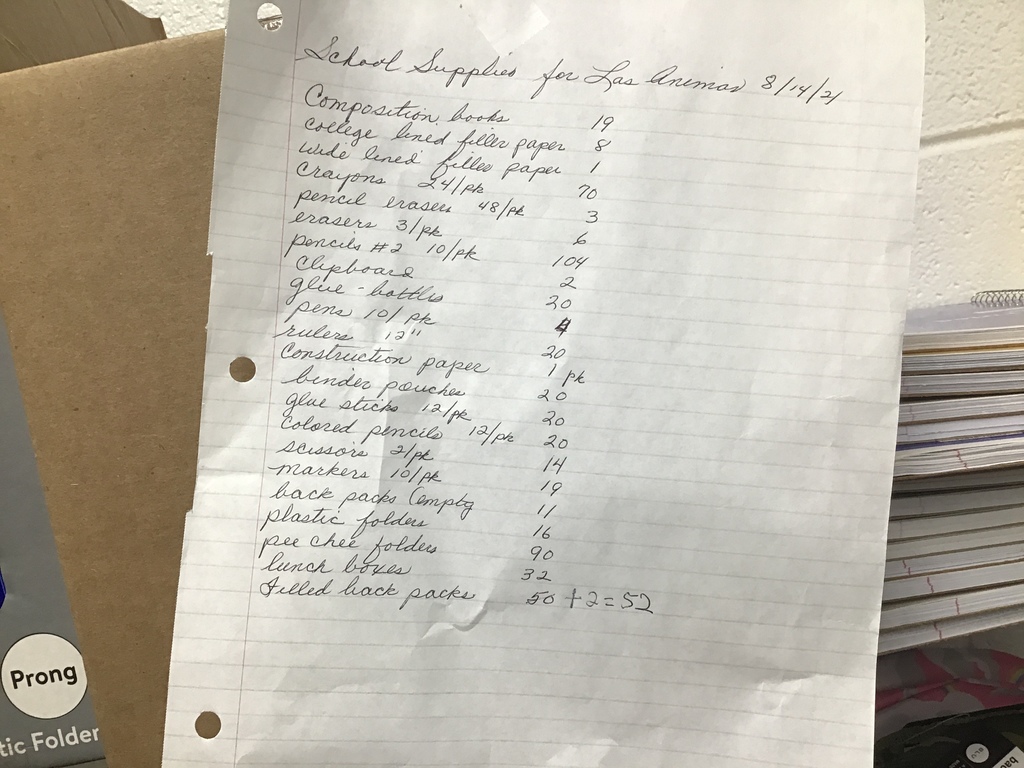 School Supplies for Las Animas 8/14/21
Composition books 19
college lined filler paper 8
wide lined filler paper 1
Crayons 24/pk 70
pencil erasers 48/pk 3
erasers 3/pk 6
pencils #2 10/pk 104
Clipboard 2
glue-bottles 20
pens 10/pk 4
rulers 12" 20
Construction paper 1 pk
binder pouches 20
glue sticks 12/pk 20
Colored pencils 12/pk 20
scissors 2/pk 14
markers 10/pk 19
back packs (empty 11
plastic folders 16
pee chee folders 90
lunch boxes 32
filled back packs 50 + 2 = 52
Prong
tic Folder